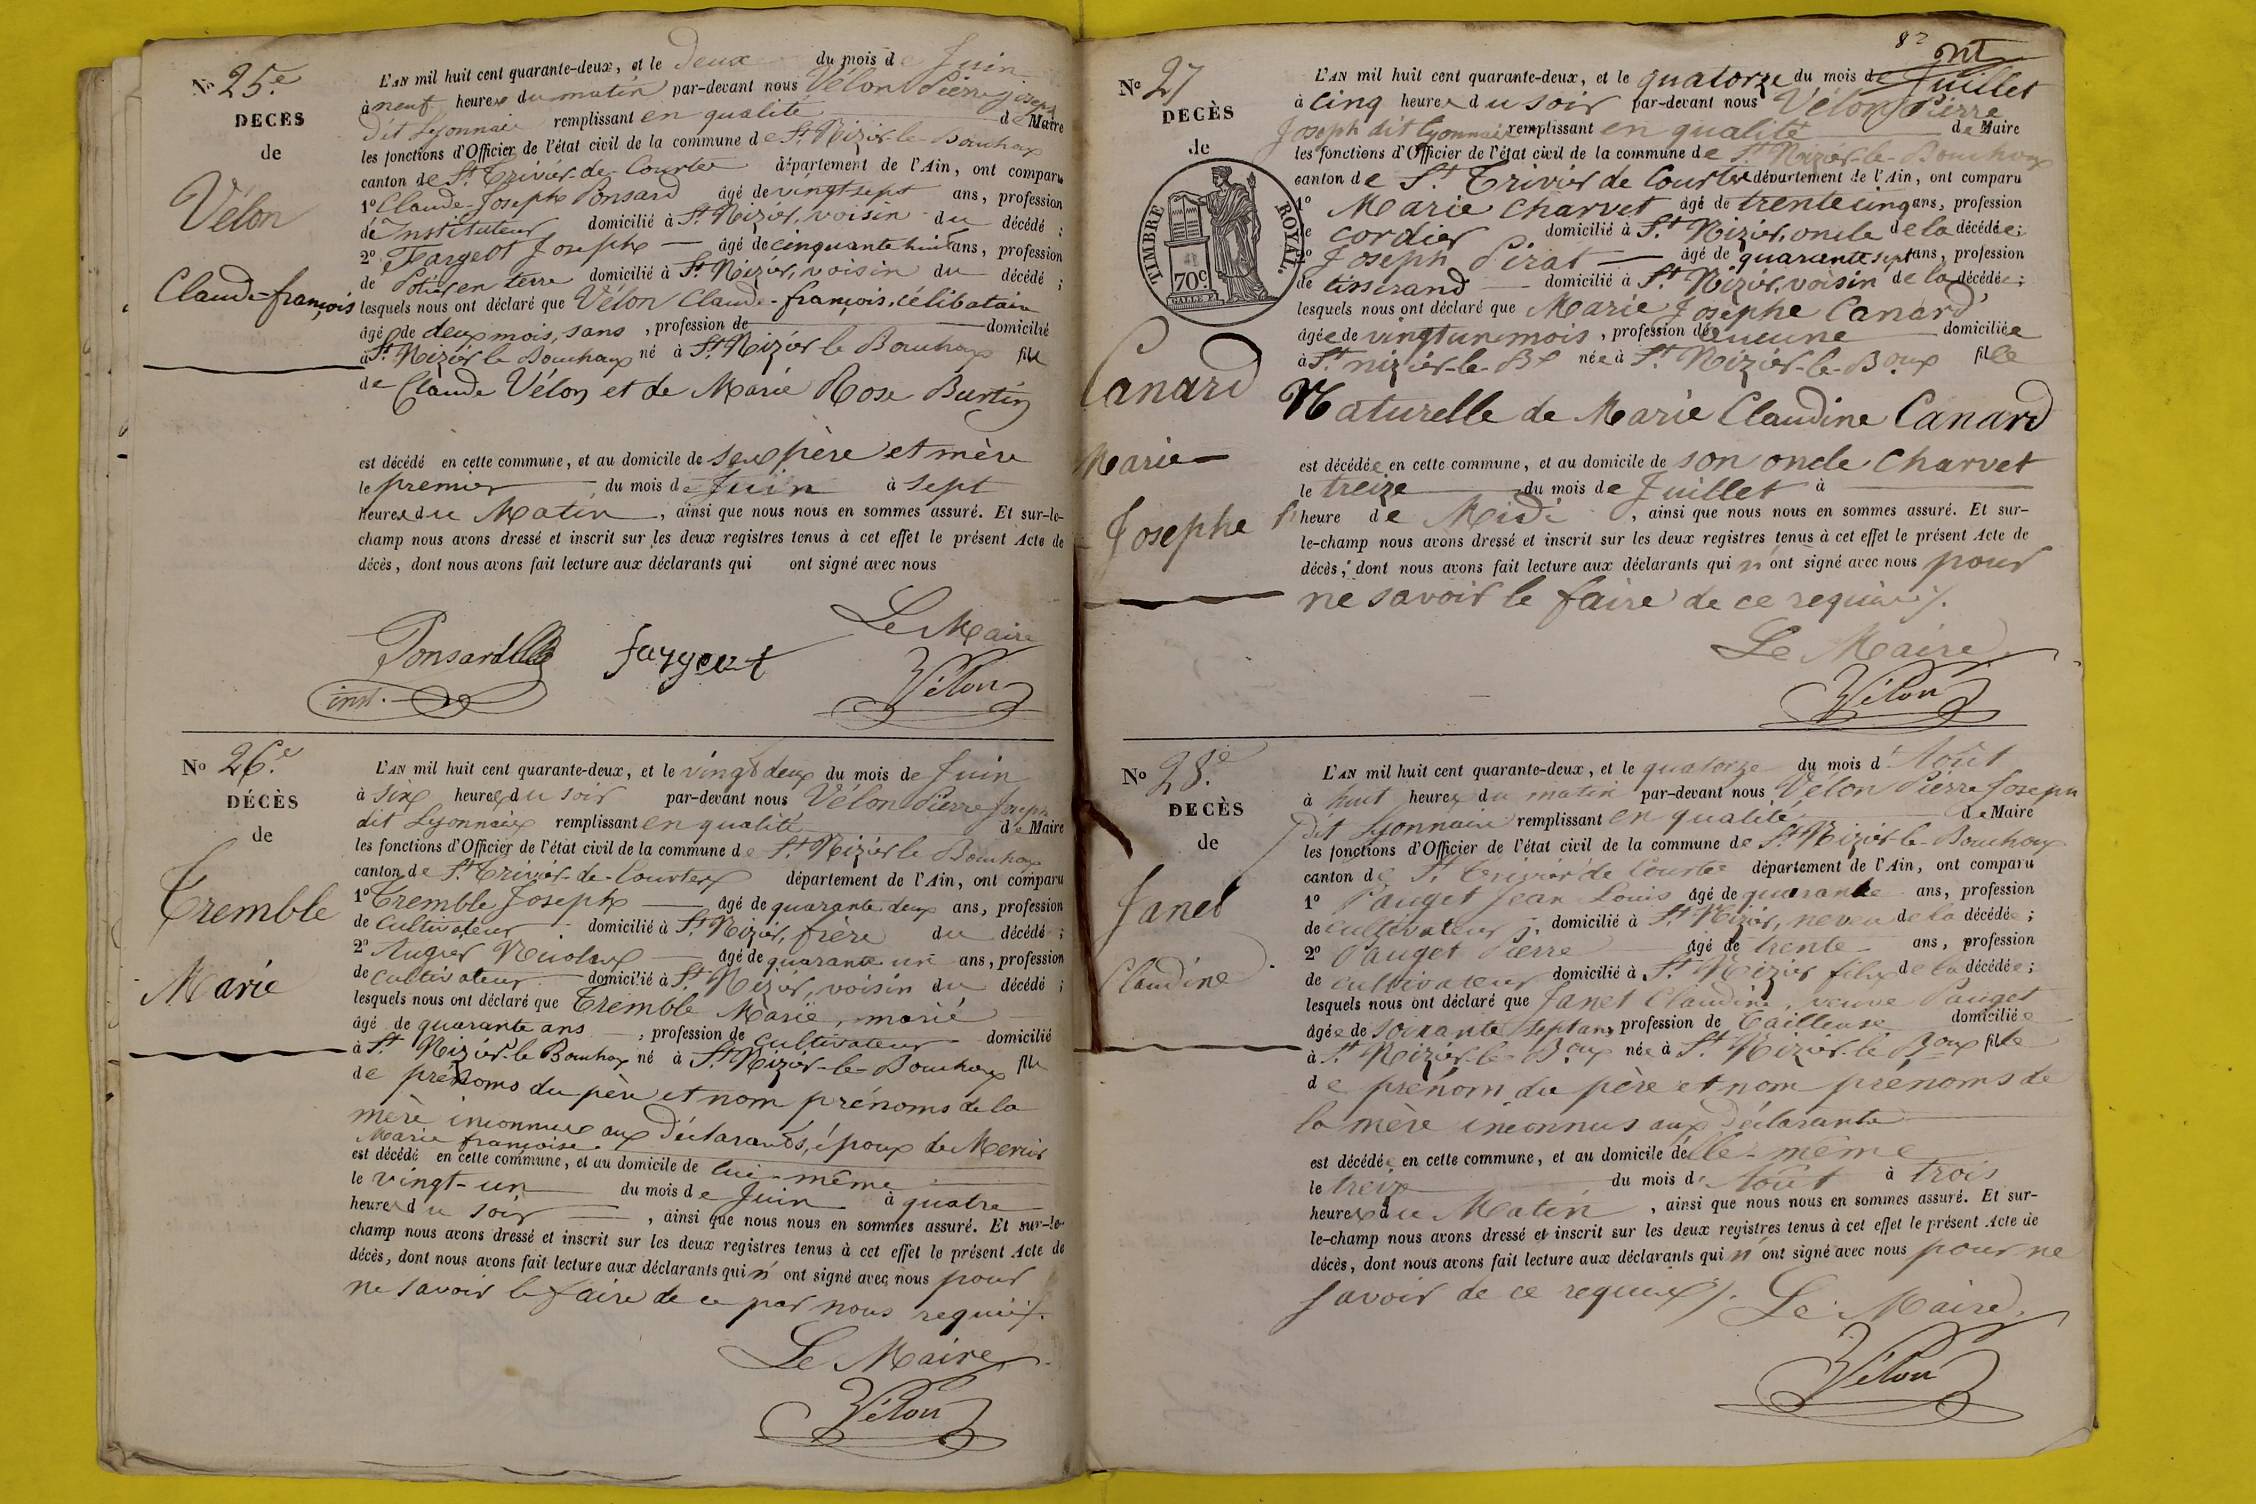 N° 25.e
DECÈS
de
Vélon
Claude-françois
L'AN mil huit cent quarante-deux, et le deux du mois de Juin
à neuf heures du matin par-devant nous Vélon Pierre joseph
dit Lyonnais remplissant en qualité de Maire
les fonctions d'Officier de l'état civil de la commune de St Nizier-le-Bouchoux
canton de St Trivier-de-Courtes département de l'Ain, ont comparu
1° Claude-Joseph Ponsard âgé de vingt sept ans, profession
de Instituteur domicilié à St Nizier, voisin du décédé ;
2° Fargeot Joseph — âgé de cinquante huit ans, profession
de Potier en terre domicilié à St Nizier, voisin du décédé ;
lesquels nous ont déclaré que Vélon Claude-françois, célibataire
âgé de deux mois, sans , profession de domicilié
à St Nizier le Bouchoux né à St Nizier le Bouchoux fils
de Claude Vélon et de Marie Rose Burtin
est décédé en cette commune, et au domicile de ses père et mère
le premier du mois de Juin à sept
heures du Matin , ainsi que nous nous en sommes assuré. Et sur-le-
champ nous avons dressé et inscrit sur les deux registres tenus à cet effet le présent Acte de
décès, dont nous avons fait lecture aux déclarants qui ont signé avec nous
Le Maire
Ponsard fargeot Vélon
inst.
N° 26.e
DÉCÈS
de
Tremble
Marie
L'AN mil huit cent quarante-deux, et le vingt deux du mois de Juin
à six heures du soir par-devant nous Vélon Pierre Joseph
dit Lyonnais remplissant en qualité de Maire
les fonctions d'Officier de l'état civil de la commune de St Nizier le Bouchoux
canton de St Trivier-de-Courtes département de l'Ain, ont comparu
1° Tremble Joseph — âgé de quarante deux ans, profession
de Cultivateur domicilié à St Nizier, frère du décédé ;
2° Auger Nicolas — âgé de quarante un ans, profession
de Cultivateur domicilié à St Nizier, voisin du décédé ;
lesquels nous ont déclaré que Tremble Marie, marié
âgé de quarante ans , profession de Cultivateur domicilié
à St Nizier-le Bouchoux né à St Nizier-le-Bouchoux fils
de prénoms du père et nom prénoms de la
mère inconnus aux Déclarants, époux de Mercier
Marie françoise
est décédé en cette commune, et au domicile de lui-même
le vingt-un du mois de Juin à quatre
heures du soir , ainsi que nous nous en sommes assuré. Et sur-le-
champ nous avons dressé et inscrit sur les deux registres tenus à cet effet le présent Acte de
décès, dont nous avons fait lecture aux déclarants qui n' ont signé avec nous pour
ne savoir le faire de ce par nous requis /.
Le Maire
Vélon
82
N° 27
DECÈS
de
TIMBRE ROYAL.
70c.
Canard
Marie
Josephe
L'AN mil huit cent quarante-deux, et le quatorze du mois de Juillet
à cinq heures du soir par-devant nous Vélon Pierre
Joseph dit lyonnais remplissant en qualité de Maire
les fonctions d'Officier de l'état civil de la commune de St Nizier-le-Bouchoux
canton de St Trivier de Courtes département de l'Ain, ont comparu
1° Marie Charvet âgé de trente cinq ans, profession
de cordier domicilié à St Nizier, oncle de la décédée ;
2° Joseph Pirat — âgé de quarante sept ans, profession
de tisserand domicilié à St Nizier, voisin de la décédée ;
lesquels nous ont déclaré que Marie Josephe Canard
âgée de vingt un mois , profession de aucune domiciliée
à St nizier-le-Bx née à St Nizier-le-Boux fille
Naturelle de Marie Claudine Canard
est décédée en cette commune, et au domicile de son oncle Charvet
le treize du mois de Juillet à
heure de Midi , ainsi que nous nous en sommes assuré. Et sur-
le-champ nous avons dressé et inscrit sur les deux registres tenus à cet effet le présent Acte de
décès, dont nous avons fait lecture aux déclarants qui n' ont signé avec nous pour
ne savoir le faire de ce requis /.
Le Maire
Vélon
N° 28.e
DECÈS
de
Janet
Claudine
L'AN mil huit cent quarante-deux, et le quatorze du mois d' Août
à huit heures du matin par-devant nous Vélon Pierre Joseph
dit Lyonnais remplissant en qualité de Maire
les fonctions d'Officier de l'état civil de la commune de St Nizier-le-Bouchoux
canton de St Trivier de Courtes département de l'Ain, ont comparu
1° Pauget Jean Louis âgé de quarante ans, profession
de cultivateur domicilié à St Nizier, neveu de la décédée ;
2° Pauget Pierre âgé de trente ans, profession
de cultivateur domicilié à St Nizier fils de la décédée ;
lesquels nous ont déclaré que Janet Claudine, veuve Pauget
âgée de soixante sept ans profession de Tailleuse domiciliée
à St Nizier-le-Boux née à St Nizier-le Boux fille
de prénom du père et nom prénoms de
la mère inconnus aux Déclarants
est décédée en cette commune, et au domicile d'elle-même
le treize du mois d' Août à trois
heures du Matin , ainsi que nous nous en sommes assuré. Et sur-
le-champ nous avons dressé et inscrit sur les deux registres tenus à cet effet le présent Acte de
décès, dont nous avons fait lecture aux déclarants qui n' ont signé avec nous pour ne
savoir de ce requis /. Le Maire
Vélon